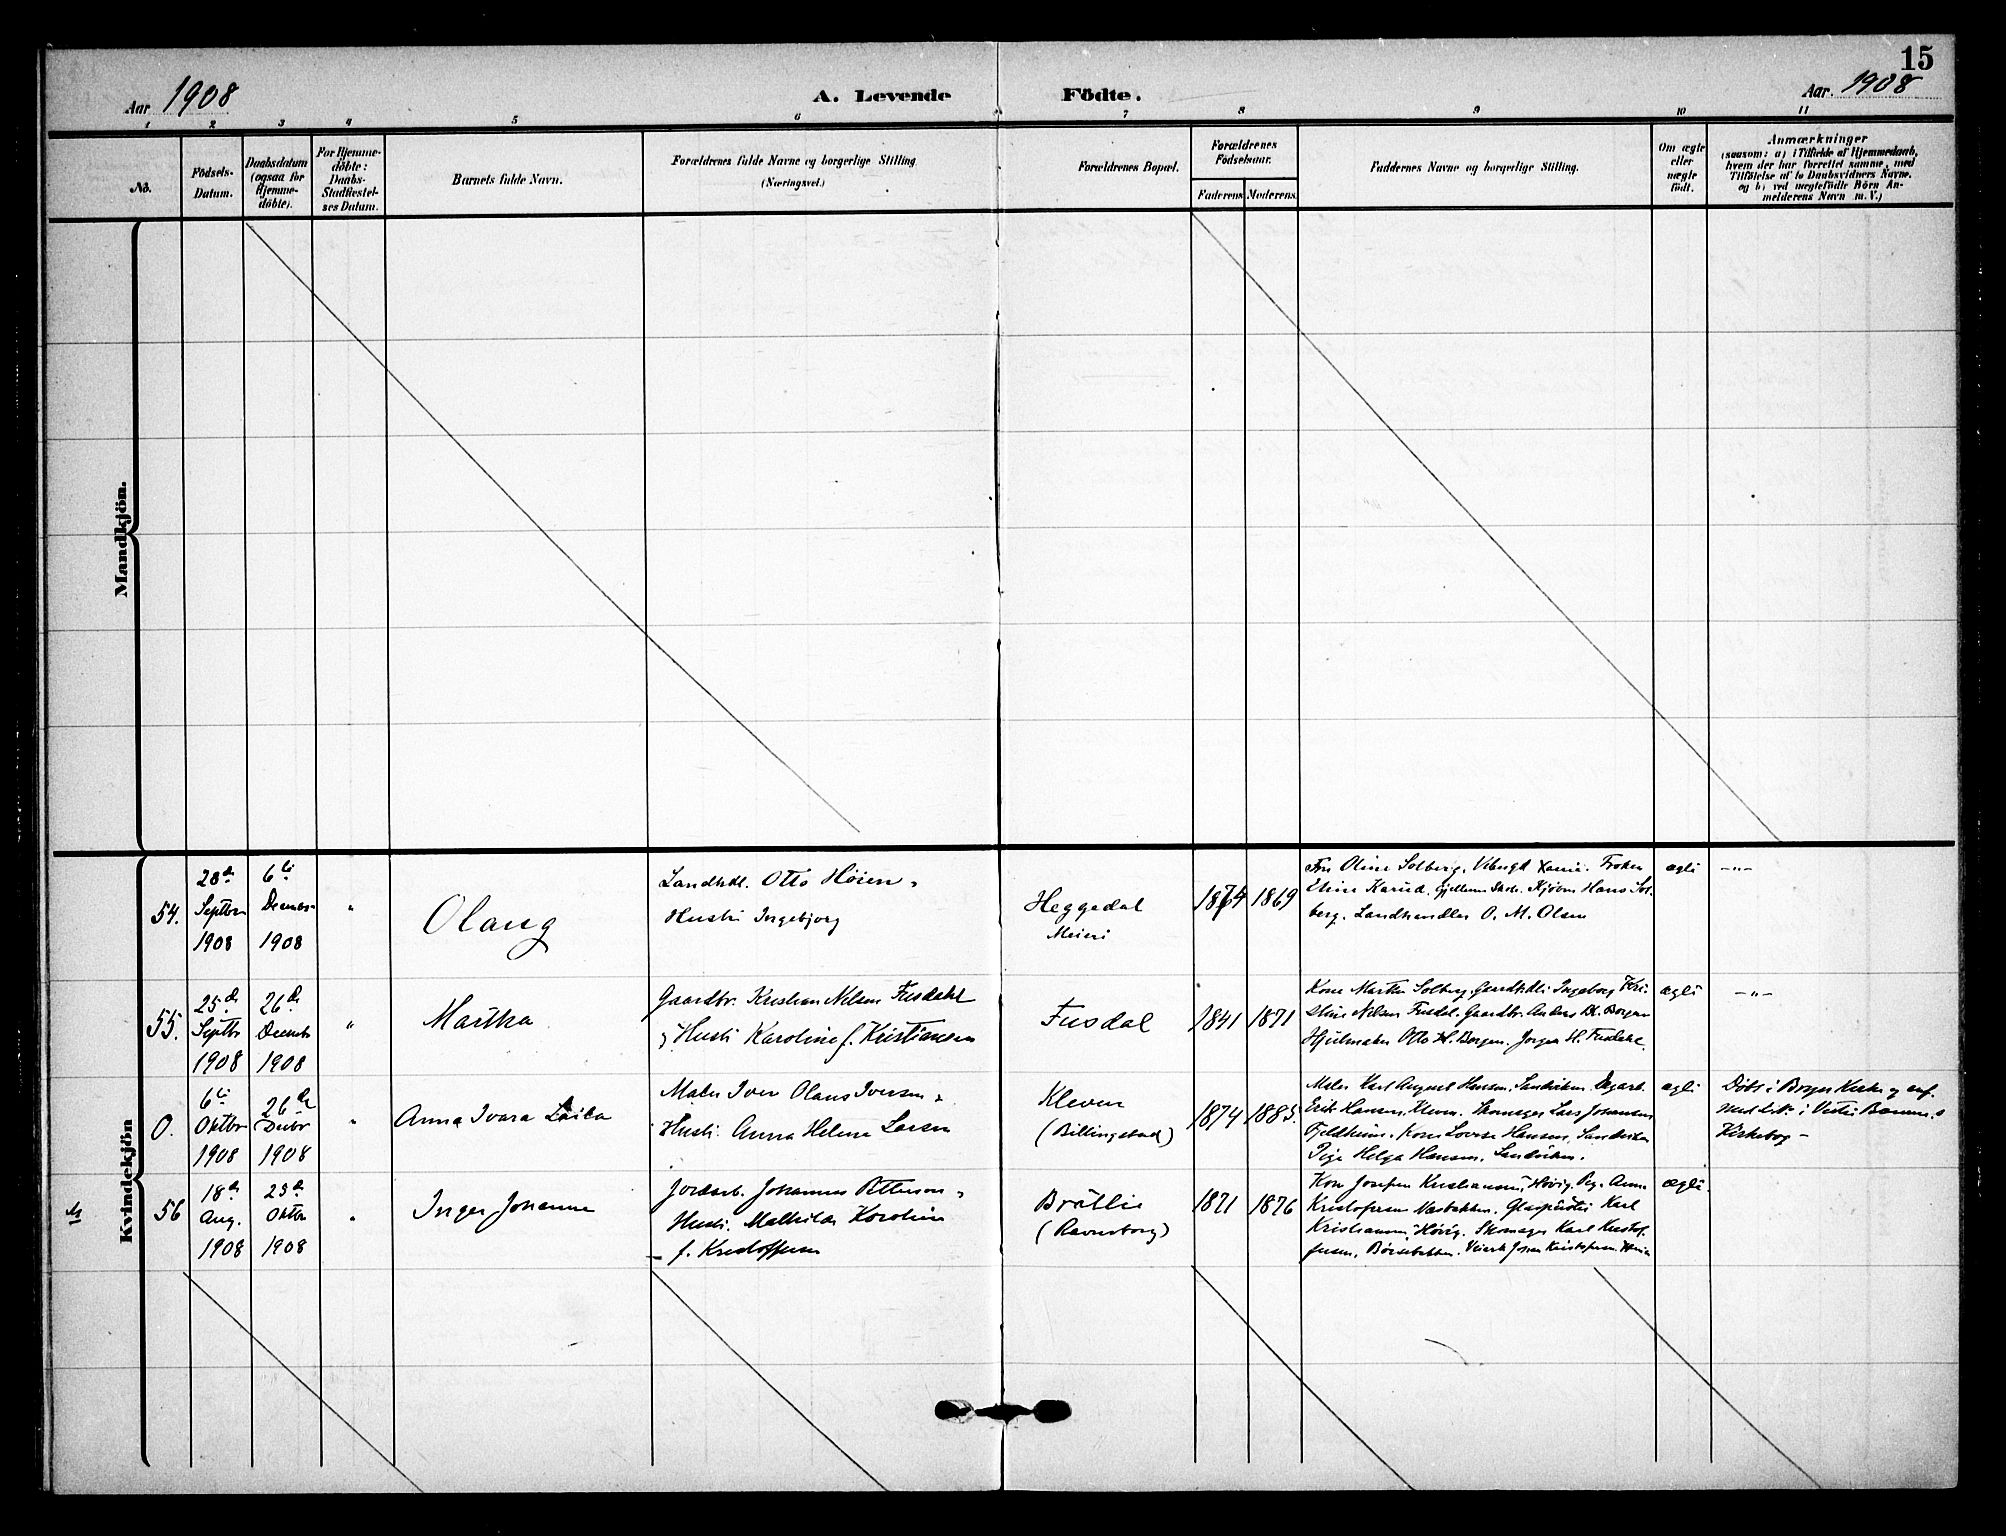 15
Aar 1908
A. Levende Födte.
Aar. 1908
1 2 3 4 5 6 7 8 9 10 11
No.
Födsels-Datum.
Daabsdatum (ogsaa for Hjemme-döbte).
For Hjemme-döbte: Daabs-Stadfæstel-ses Datum.
Barnets fulde Navn.
Forældrenes fulde Navne og borgerlige Stilling
(Næringsvei.)
Forældrenes Bopæl.
Forældrenes Födselsaar.
Faderens Moderens
Faddernes Navne og borgerlige Stilling.
Om ægte eller uægte födt.
Anmærkninger
(saasom: a) i Tilfælde af Hjemmedaab,
hvem der har forrettet samme, med
Tilföielse af to Daabsvidners Navne.
og b) ved uægtefödte Börn An-
melderens Navn m. V.)
Mandkjön.
Kvindekjön
54.
28de Septbr 1908
6te Decembr 1908
"
Olaug
Landhdl. Otto Höien
Hustru Ingebjorg
Heggedal
Meieri
1864 1869
Fru Oline Solberg, Fröken
Hans Sol-
berg. Landhandler O. M. Olsen
ægte
—"—
55.
25de Septbr 1908
26de Decembr 1908
"
Martha
Gaardbr. Kristian Nilsen Fusdahl
Hustru Karoline f. Kristiansen
Fusdal
1841 1871
Kone Martha Solberg, Ingeborg Kri-
stine Nilsen Fusdal. Gaardbr. Anders Borgen
Hjulmaker Otto H. Borgen. Jorgen H. Fusdahl.
ægte
—"—
0.
6te Oktbr 1908
26de Decbr 1908
"
Anna Ivara Laila
Maler Iver Olaus Iversen
Hustru Anna Helene Larsen
Kleven
(Billingstad)
1874 1885.
Maler Karl August Hansen, Sandviken
Erik Hansen, Kleven. Skomager Lars Johansen
Fjeldheim. Kone Lovise Hansen, Sandviken
Pige Helga Hansen, Sandviken.
ægte
Döbt i Kirke og anf.
i Vestre Bærums
Kirkebog —
56
18de Aug. 1908
25de Oktbr 1908
"
Inger Johanne
Jordarb. Johannes Petterson
Hustru Mathilde Karoline
f. Kristoffersen
Bråtlie
(Ravnsborg)
1871 1876
Kone Josefine Kristiansen, Hövig. Pige Anna
Kristofersen Karl
Kristiansen, Hövig. Skomager Karl Kristof-
fersen, Börsebakken. Johan Kristofersen
ægte.